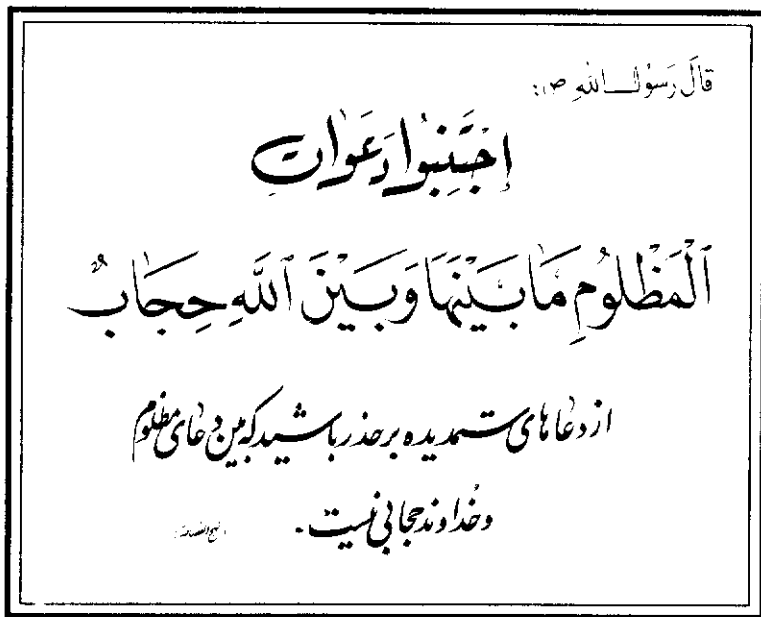 قالَ رَسُولُ اللهِ (ص):
اِجْتَنِبُوا دَعَواتِ
ٱلْمَظْلُومِ مٰا بَيْنَهٰا وَبَيْنَ ٱللَّهِ حِجٰابٌ
از دعاهای ستمدیده برحذر باشید که بین دعای مظلوم
و خداوند حجابی نیست.
(نهج الفصاحه)